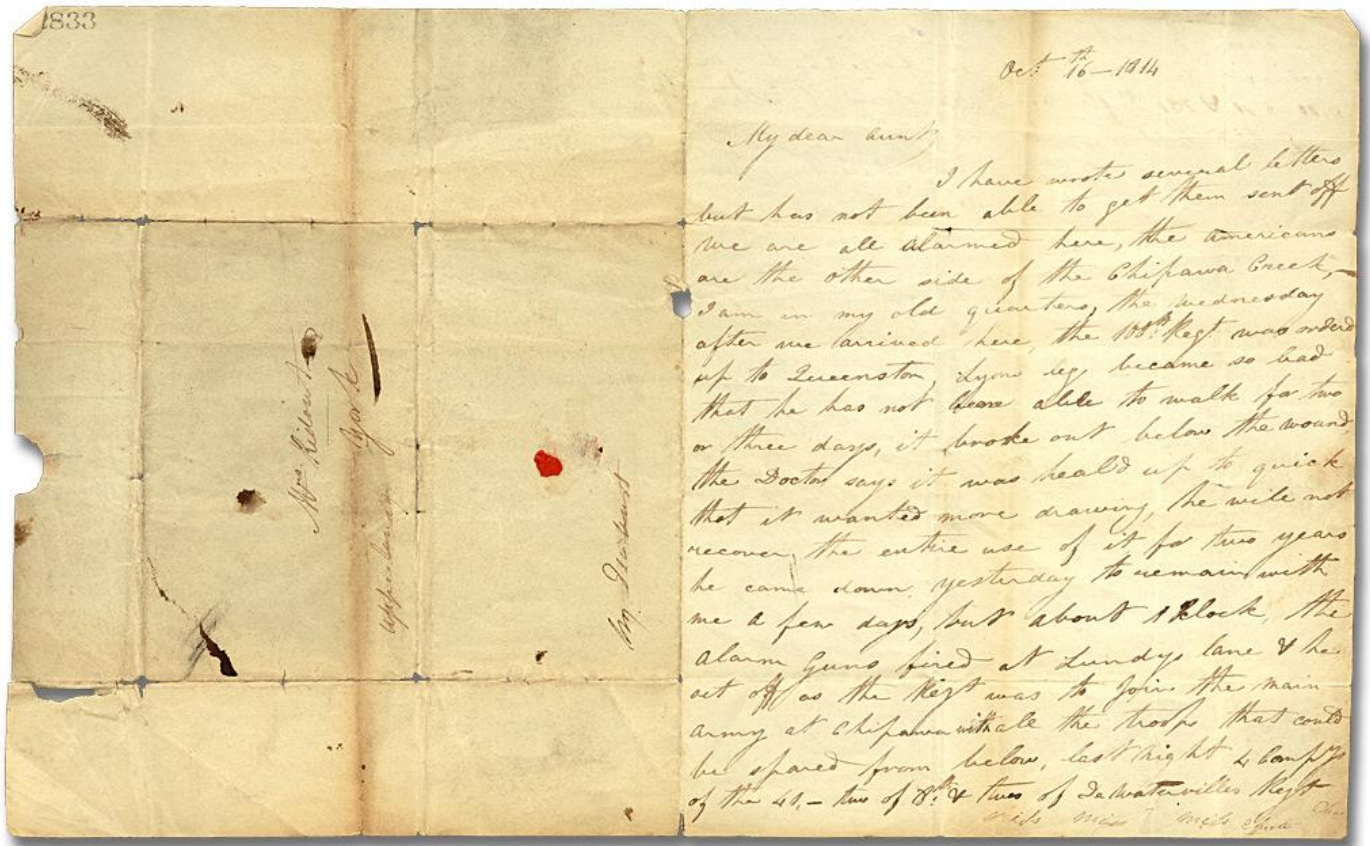 1833
Mrs Ridout
York
by Dewhurst
Octr 16th - 1814
My dear Aunt,
I have wrote several letters
but has not been able to get them sent off
we are all alarmed here, the Americans
are the other side of the Chipawa Creek, -
I am in my old quarters, the wednesday
after we arrived here, the Regt was orderd
up to Queenston, Lyons leg became so bad
that he has not been able to walk for two
or three days, it broke out below the wound,
the Doctor says it was heald up to quick
that it wanted more drawing, he will not
recover the entire use of it for two years
he came down yesterday to remain with
me a few days, but about the
Alarm Guns fired at Lundys lane & he
set off as the Regt was to join the main
army at Chipawa with all the troops that could
be spared from below, last night 4 Compys
of the - two of & two of De Watervilles Regt